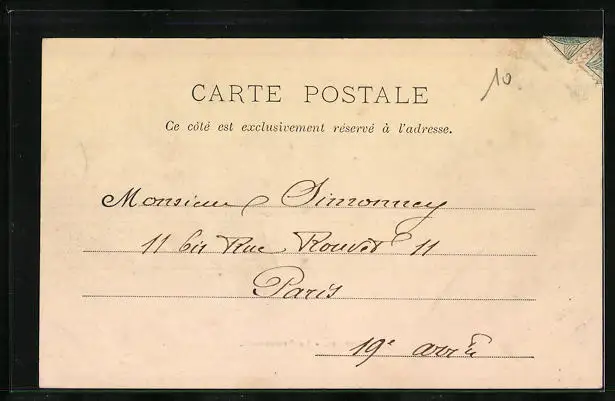 10
CARTE POSTALE
Ce côté est exclusivement réservé à l'adresse.
Monsieur Simonney
11 bis Rue Rouvet 11
Paris
19e arrt